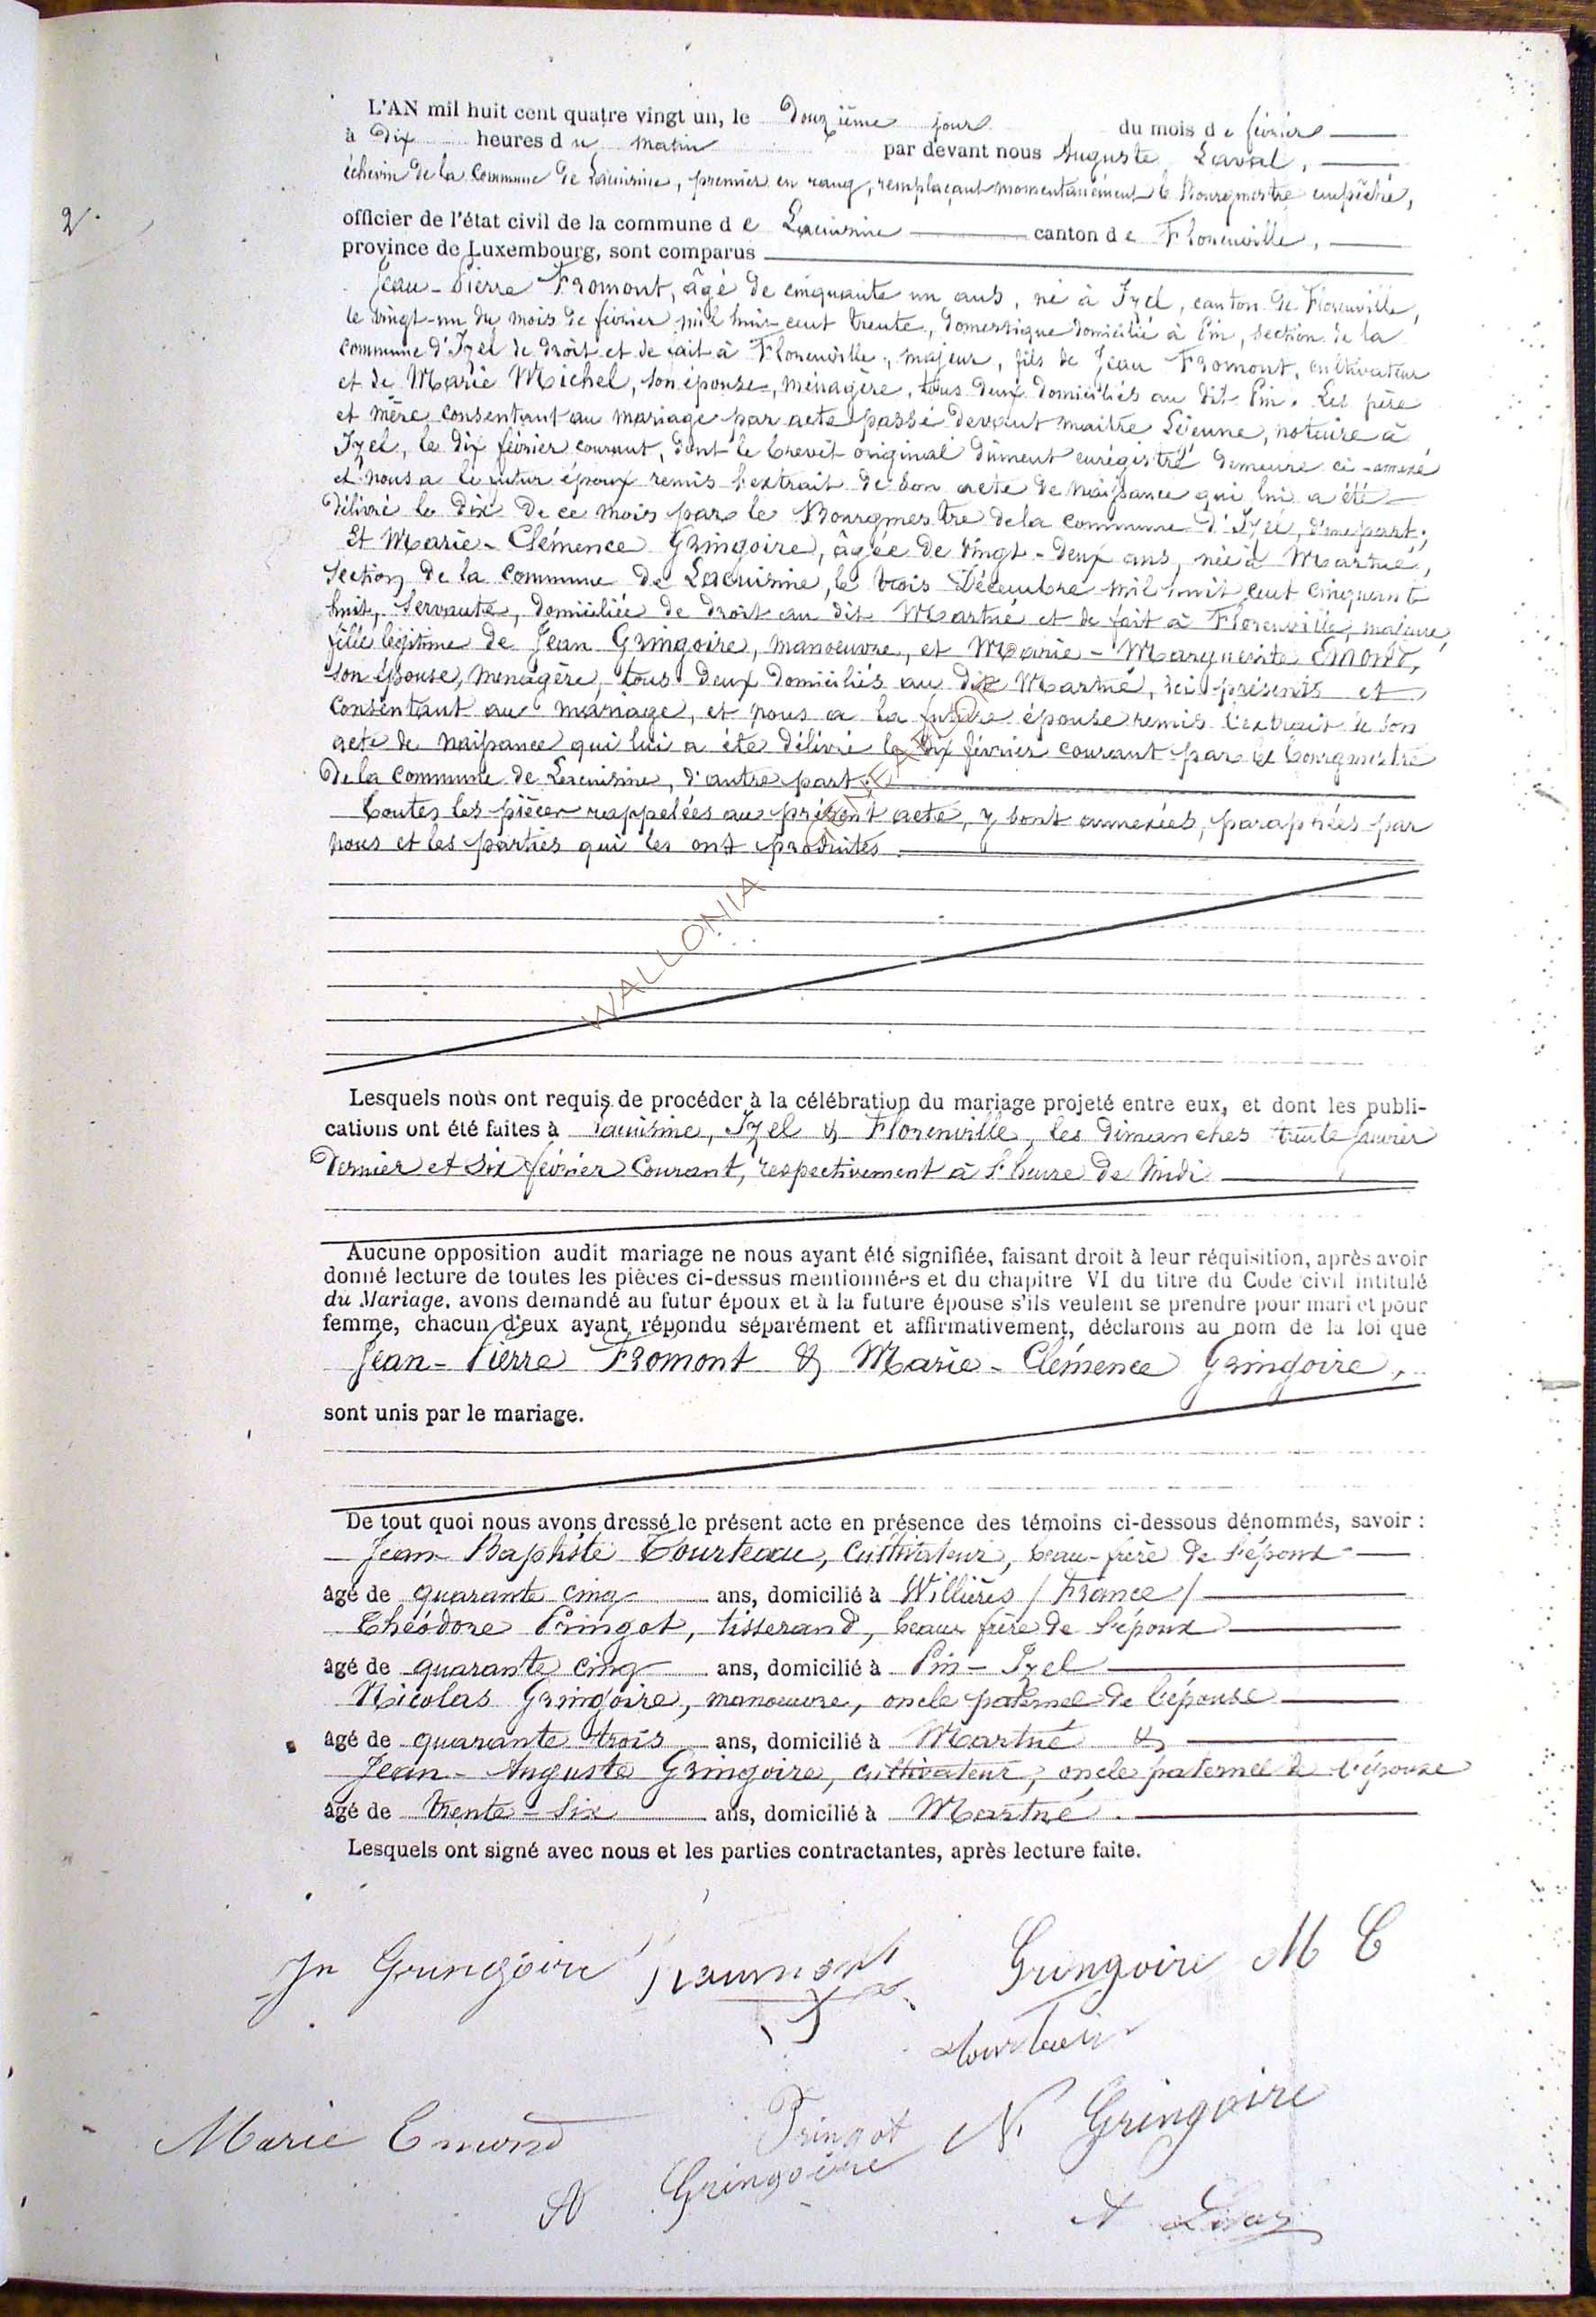 L'AN mil huit cent quatre vingt un, le Douzième jour du mois de février
à Dix heures du matin par devant nous Auguste Laval,
échevin de la Commune de Lacuisine, premier en rang, remplaçant momentanément le Bourgmestre empêché,
2.
officier de l'état civil de la commune de Lacuisine canton de Florenville,
province de Luxembourg, sont comparus
Jean-Pierre Fromont, âgé de cinquante un ans, né à Izel, canton de Florenville,
le vingt-un du mois de février mil huit cent trente, domestique domicilié à Pin, section de la
commune d'Izel de droit et de fait à Florenville, majeur, fils de Jean Fromont, cultivateur
et de Marie Michel, son épouse, ménagère, tous deux domiciliés au dit Pin. Les père
et mère consentant au mariage par acte passé devant maître Lejeune, notaire à
Izel, le dix février courant, dont le brevet original dûment enrégistré demeure ci-annexé
et nous a le futur époux remis l'extrait de son acte de naissance qui lui a été
délivré le dix de ce mois par le Bourgmestre de la commune d'Izel, d'une part;
Et Marie-Clémence Gringoire, âgée de vingt-deux ans, née à Martué,
section de la commune de Lacuisine, le trois Décembre mil huit cent cinquante
huit, servante, domiciliée de droit au dit Martué et de fait à Florenville, majeure,
fille légitime de Jean Gringoire, manoeuvre, et Marie-Marguerite Emond,
son épouse, ménagère, tous deux domiciliés au dit Martué, ici présents et
consentant au mariage, et nous a la future épouse remis l'extrait de son
acte de naissance qui lui a été délivré le dix février courant par le bourgmestre
de la commune de Lacuisine, d'autre part.
Toutes les pièces rappelées au présent acte, y sont annexées, paraphées par
nous et les parties qui les ont produites.
WALLONIA
Lesquels nous ont requis de procéder à la célébration du mariage projeté entre eux, et dont les publi-
cations ont été faites à Lacuisine, Izel & Florenville, les dimanches trente janvier
dernier et six février courant, respectivement à l'heure de midi
Aucune opposition audit mariage ne nous ayant été signifiée, faisant droit à leur réquisition, après avoir
donné lecture de toutes les pièces ci-dessus mentionnées et du chapitre VI du titre du Code civil intitulé
du Mariage, avons demandé au futur époux et à la future épouse s'ils veulent se prendre pour mari et pour
femme, chacun d'eux ayant répondu séparément et affirmativement, déclarons au nom de la loi que
Jean-Pierre Fromont & Marie-Clémence Gringoire,
sont unis par le mariage.
De tout quoi nous avons dressé le présent acte en présence des témoins ci-dessous dénommés, savoir :
Jean Baptiste Tourteau, cultivateur, beau-frère de l'époux
âgé de quarante cinq ans, domicilié à Williers / France /
Théodore Pringot, tisserand, beau frère de l'époux
âgé de quarante cinq ans, domicilié à Pin-Izel
Nicolas Gringoire, manoeuvre, oncle paternel de l'épouse
âgé de quarante trois ans, domicilié à Martué &
Jean-Auguste Gringoire, cultivateur, oncle paternel de l'épouse
âgé de trente-six ans, domicilié à Martué.
Lesquels ont signé avec nous et les parties contractantes, après lecture faite.
Jn Gringoire Gringoire M C
Marie Emond Pringot N. Gringoire
A Gringoire